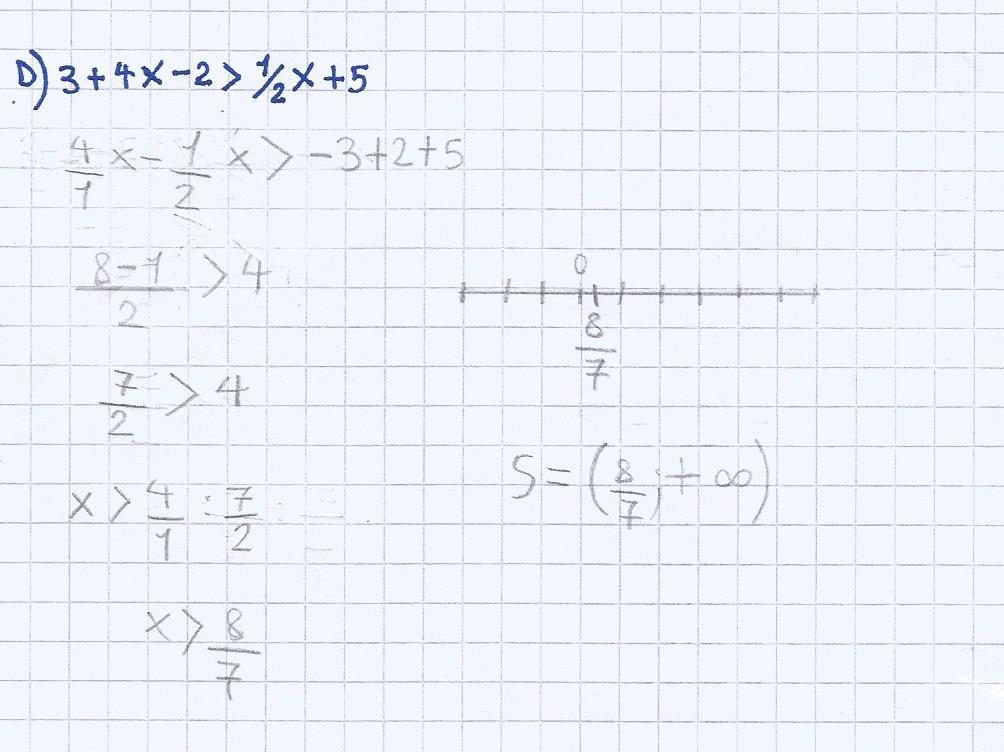 D) 3+4x-2 > 1/2x+5
4/1 x - 1/2 x > -3+2+5
8-1/2 > 4
7/2 > 4
x > 4/1 : 7/2
x > 8/7
0
8/7
S = (8/7; +∞)